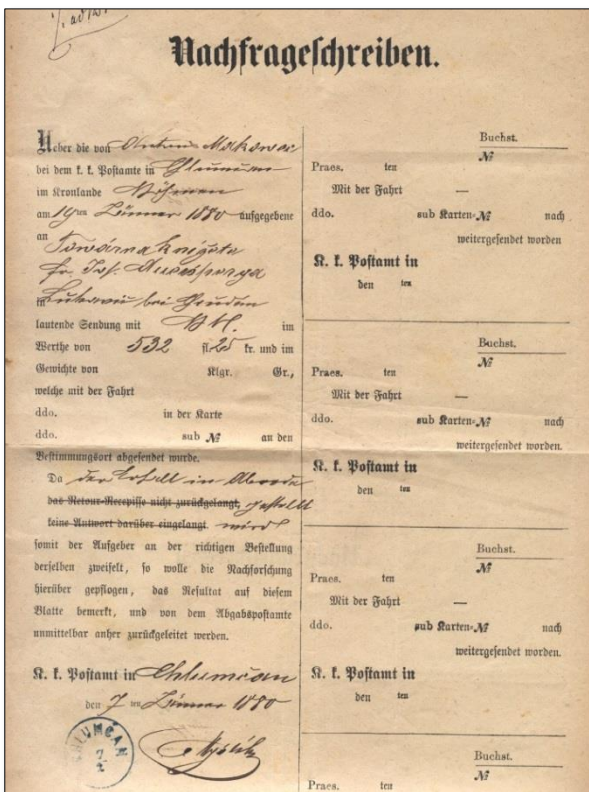 Nachfrageschreiben.
Ueber die von Makowec
bei dem k. k. Postamte in Chlumčan
im Kronlande Böhmen
am 19ten Jänner 1880 aufgegebene
an Továrna knížete
fr. Jos. Auersperga
in bei
lautende Sendung mit im
Werthe von 532 fl. 25 kr. und im
Gewichte von Klgr. Gr.,
welche mit der Fahrt
ddo. in der Karte
ddo. sub № an den
Bestimmungsort abgesendet wurde.
Da der Erhalt in Abrede
das Retour-Recepisse nicht zurückgelangt, gestellt
keine Antwort darüber eingelangt wird
somit der Aufgeber an der richtigen Bestellung
derselben zweifelt, so wolle die Nachforschung
hierüber gepflogen, das Resultat auf diesem
Blatte bemerkt, und von dem Abgabspostamte
unmittelbar anher zurückgeleitet werden.
K. k. Postamt in Chlumčan
den 7 ten Jänner 1880
CHLUMČAN
7
2
Buchst.
№
Praes. ten
Mit der Fahrt —
ddo. sub Karten-№ nach
weitergesendet worden
K. k. Postamt in
den ten
Buchst.
№
Praes. ten
Mit der Fahrt —
ddo. sub Karten-№ nach
weitergesendet worden.
K. k. Postamt in
den ten
Buchst.
№
Praes. ten
Mit der Fahrt —
ddo. sub Karten-№ nach
weitergesendet worden.
K. k. Postamt in
den ten
Buchst.
№
Praes. ten